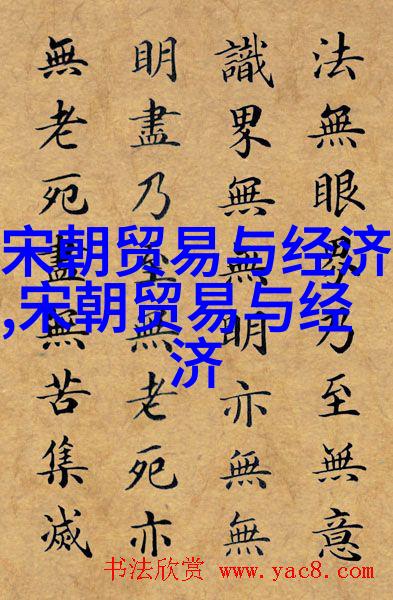 法無眼界乃至無意
識界無無明亦無無
明盡乃至無老死亦
無老死盡無苦集滅
宋朝贸易与经济
,宋朝贸易与经
济
书法欣赏 www.yac8.com